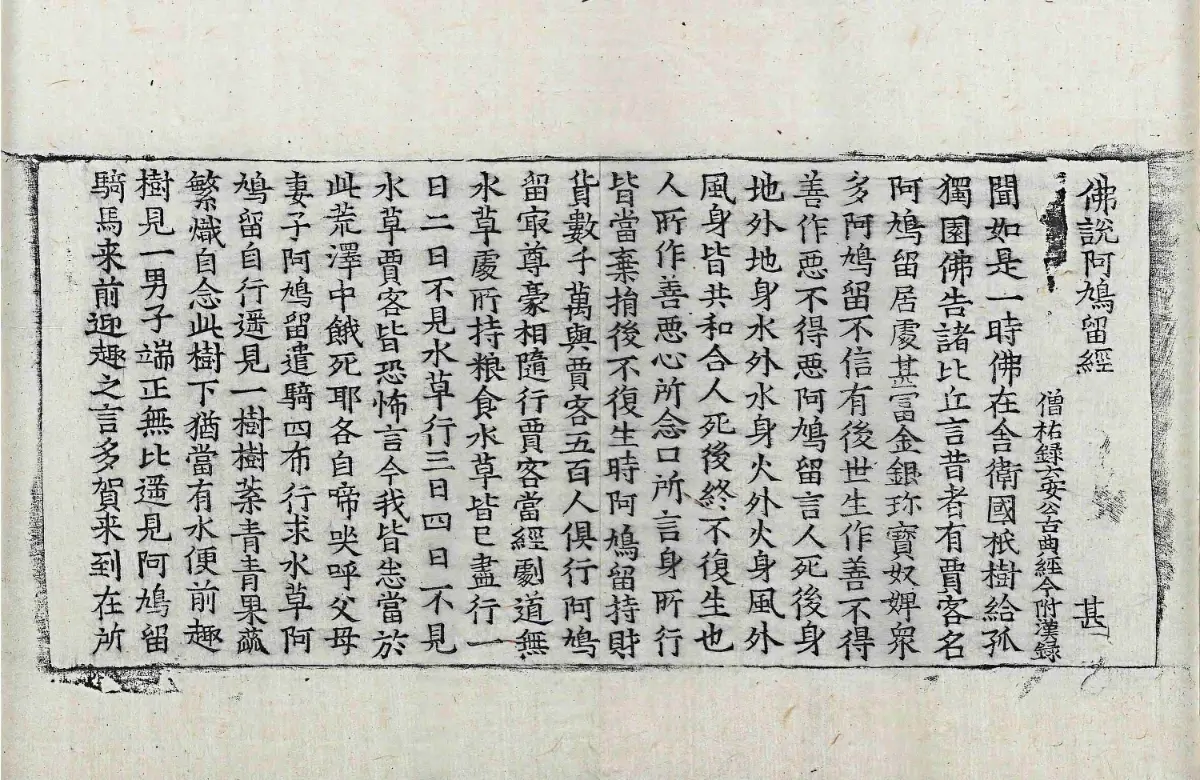 佛說阿鳩留經 甚
僧祐録云安公古典經今附漢録
聞如是一時佛在舍衛國祇樹給孤
獨園佛告諸比丘言昔者有賈客名
阿鳩留居處甚富金銀珎寶奴婢衆
多阿鳩留不信有後世生作善不得
善作惡不得惡阿鳩留言人死後身
地外地身水外水身火外火身風外
風身皆共和合人死後終不復生也
人所作善惡心所念口所言身所行
皆當棄捐後不復生時阿鳩留持財
貨數千萬與賈客五百人俱行阿鳩
留㝡尊豪相隨行賈客當經劇道無
水草處所持粮食水草皆已盡行一
日二日不見水草行三日四日不見
水草賈客皆恐怖言今我皆恐當於
此荒澤中餓死耶各自啼哭呼父母
妻子阿鳩留遣騎四布行求水草阿
鳩留自行遥見一樹樹葉青青果蓏
繁熾自念此樹下猶當有水便前趣
樹見一男子端正無比遥見阿鳩留
騎馬来前迎趣之言多賀来到在所